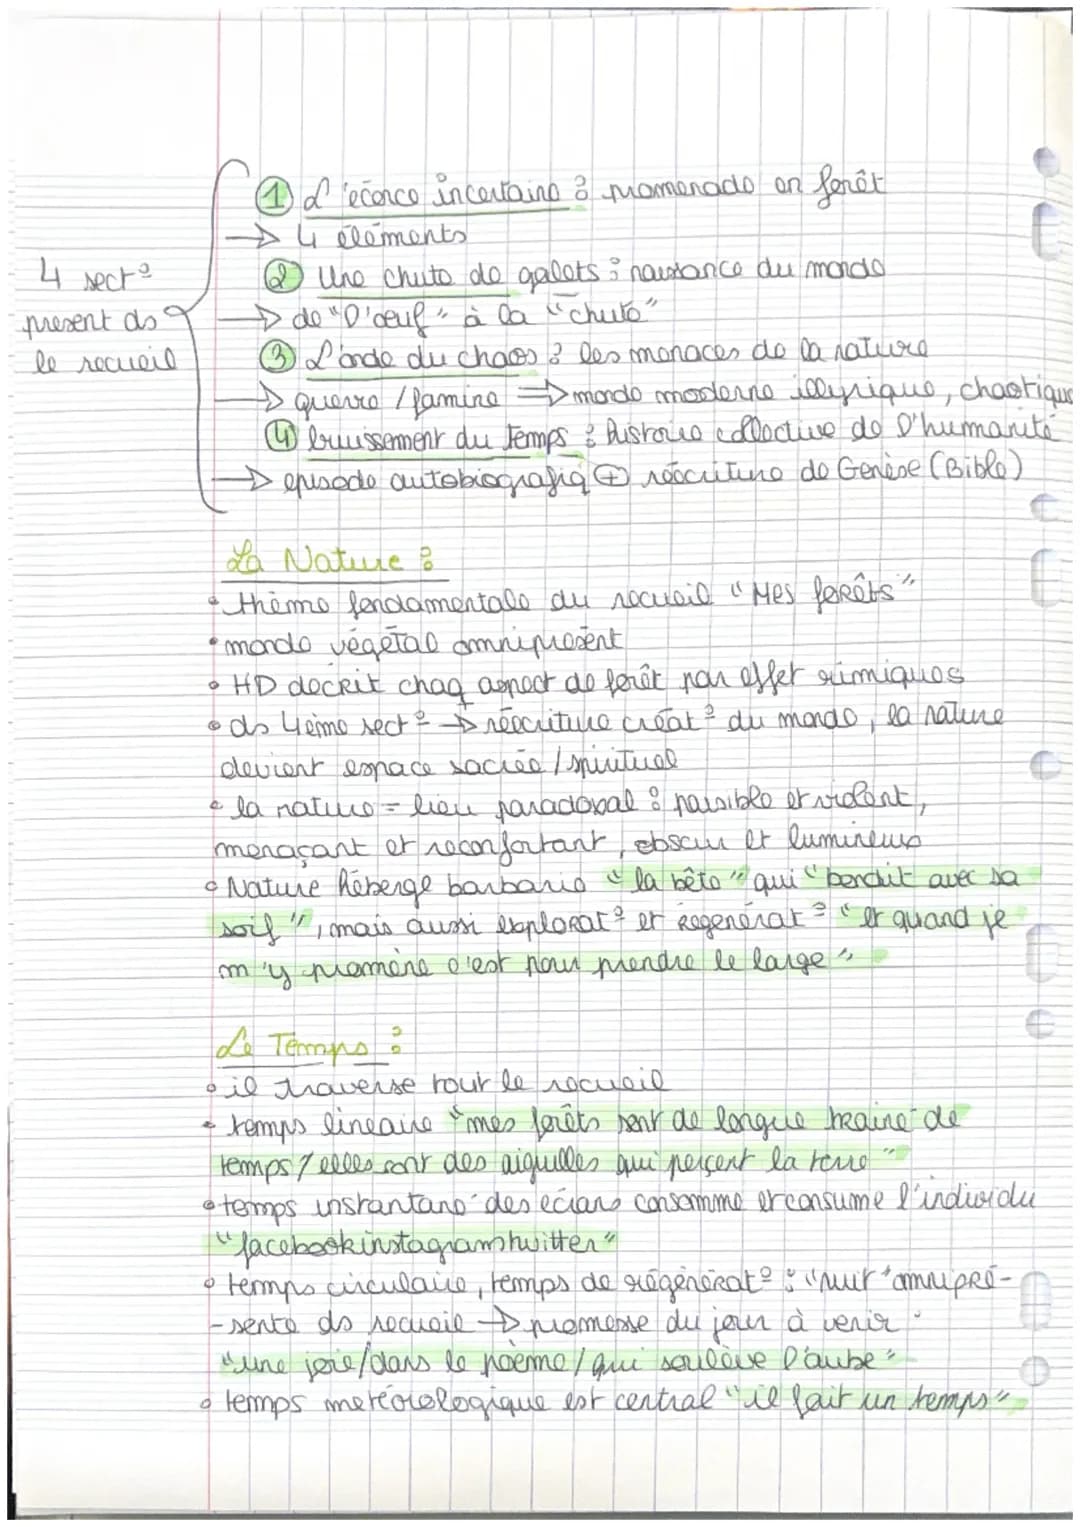 ① L'écorce incertaine : promenade en forêt
→ 4 éléments
4 sect°
present ds
le recueil
② Une chute de galets : naissance du monde
→ de "l'œuf" à la "chute"
③ L'onde du chaos : les menaces de la nature
→ guerre / famine ⇒ monde moderne illyrique, chaotique
④ bruissement du temps : histoire collective de l'humanité
→ episode autobiografiq ⊕ réécriture de Genèse (Bible)
La Nature :
• thème fondamentale du recueil "Mes forêts"
• monde végétal omniprésent
• HD decrit chaq aspect de forêt par effet rimiques
• ds 4eime sect° → réécriture créat° du monde, la nature
devient espace sacrée / spirituel
• la nature = lieu paradoxal : paisible et violent,
menaçant et reconfortant, obscur et lumineux
• Nature héberge barbarie "la bête" qui "bondit avec sa
soif", mais aussi explorat° et regenerat° "et quand je
m'y promène c'est pour prendre le large"
Le Temps :
• il traverse tout le recueil
• temps lineaire "mes forêts sont de longue traine de
temps / elles sont des aiguilles qui perçent la terre"
• temps instantané des écrans consomme et consume l'individu
"facebookinstagramtwitter"
• temps circulaire, temps de régénérat° : "nuit" omnipré-
-sente ds recueil → promesse du jour à venir
"une joie/dans le poème/qui soulève l'aube"
• temps metéorologique est central "il fait un temps"